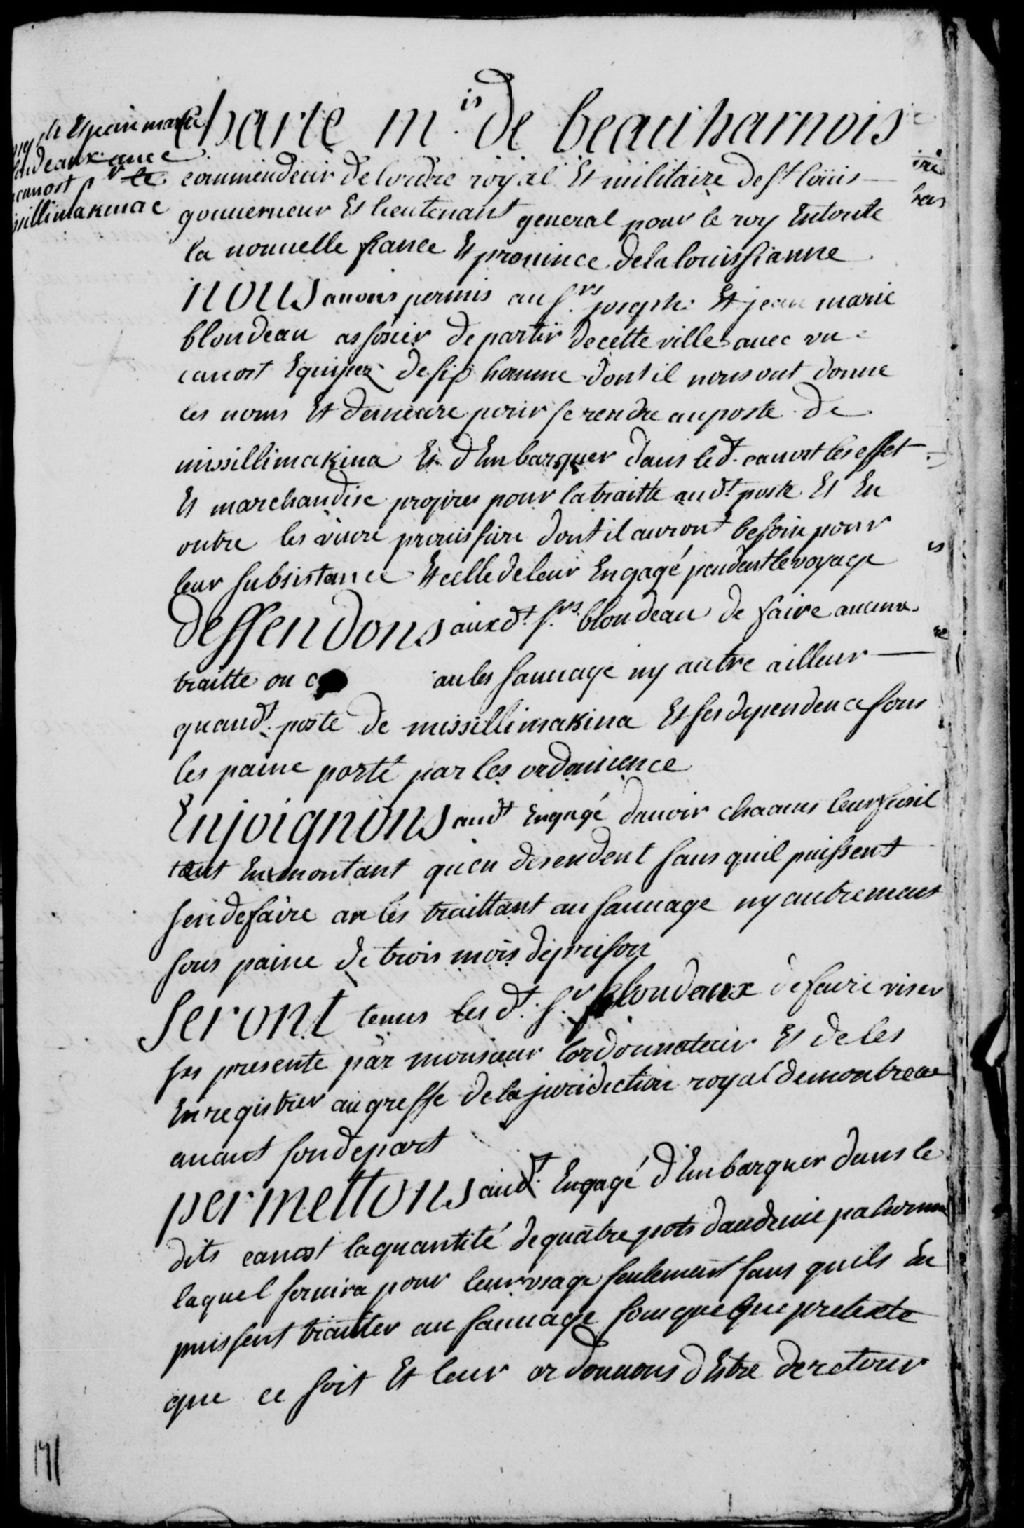 charle m.is de beauharnois
jh Et jean marie
blondeaux avec
canost pr le
missillimakinac
commendeur de lordre royal Et militaire de st louis
gouuerneur Et lieutenant general pour le roy Entoutte
la nouuelle france Et prouince de la louissianne
nous auons permis au srs. joseph Et jean marie
blondeau assosier de partir de cette ville auec vn
canost Equiper de six homme dont il nous ont donne
les noms Et demeure pour se rendre au poste de
missillimakina Et d'Embarquer dans led. canost les effet
Et marchandise propres pour la traitte audt poste Et En
outre les viure prouissire dont il auront besoin pour
leur subsistance Et celle de leur Engagé pendent le voyage
deffendons auxdt. srs. blondeau de faire aucune
traitte ou au les sauuage ny autre ailleur
quaudt. poste de missillimakina Et ses dependence sous
les paine porté par les ordonnence
Enjoignons audt Engagé dauoir chacuns leur fusil
tant En montant qu'en desendent sans quil puissent
sen defaire en les traittant au sauuage ny autrement
sous paine de trois mois de prison
seront tenus lesdt. sr blondeaux de faire viser
ses presente par monsieur lordonnateur Et de les
Enregistrer au greffe de la juridiction royal de montreal
auant son depart
permettons audt. Engagé d'Embarquer dans le
dits canost la quantité de quatre pots daudeuie par homme
laquel seruira pour leur vsage seulement sans quils En
puissent traitter au sauuage sous quelque pretexte
que ce soit Et leur ordonnons d'Estre de retour
171